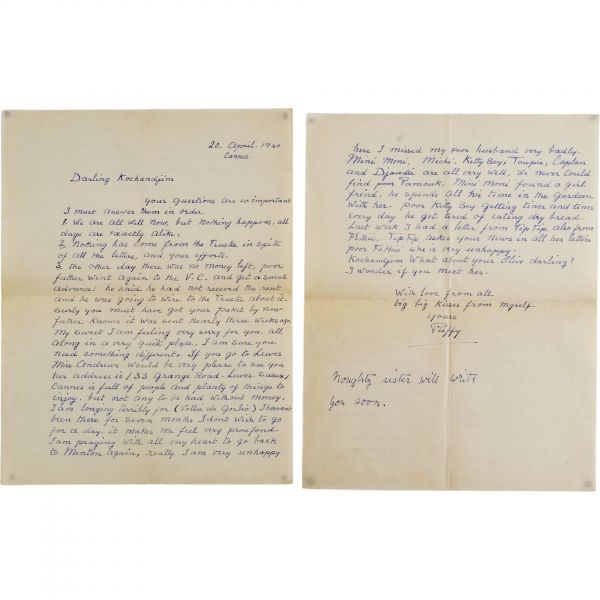 20. April. 1940
Cannes.
Darling Kochandjim
your Questions are so important
I must answer them in order.
1. We are all well now, but nothing happens, all
days are exactly alike.
2. Nothing has come from the Trustee in spite
of all the letters, and your efforts.
3. The other day there was no money left, poor
father went again to the V. C. and get a small
advance! he said he had not receved the rent
and he was going to wire to the Trustee about it.
Surly you must have got your packet by now
father knows it was sent nearly three weeks ago.
My sweet I am feeling very sorry for you, all
along in a very quite place. I am sure you
need something different. If you go to Lewes
Miss Andrews would be very please to see you
her address is / 33 Grange Road - Lewes Sussex /
Cannes is full of people and planty of things to
enjoy, but not any to be had without money.
I am longing terribly for (Vallée de Gorbio) I havent
been there for seven months I dont wish to go
for a day, it makes me feel very proufond
I am praying with all my heart to go back
to Menton again, really I am very unhappy
here I missed my poor husband very badly.
Mini Moni, Michi. Ketty Bey, Toupie, Captan
and Djaudi are all very well, we never could
find poor Pamouk. Mini Moni found a girl
friend, he spends all his time in the Gardeen
with her. poor Ketty Bey getting tiner and tiner
every day he get tired of eating dry bread.
Last week I had a letter from Tip Tip also from
Fethie. Tip Tip askes your news in all her letters
poor Fethie she is very unhappy.
Kochandjim what about your Olive darling?
I wonder if you meet her.
With love from all
big big kisses from myself.
yours
Piffy
Noughty sister will write
you soon.